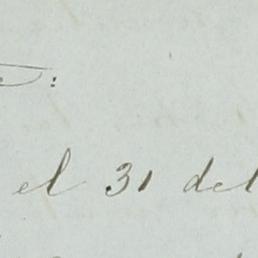 el 31 del